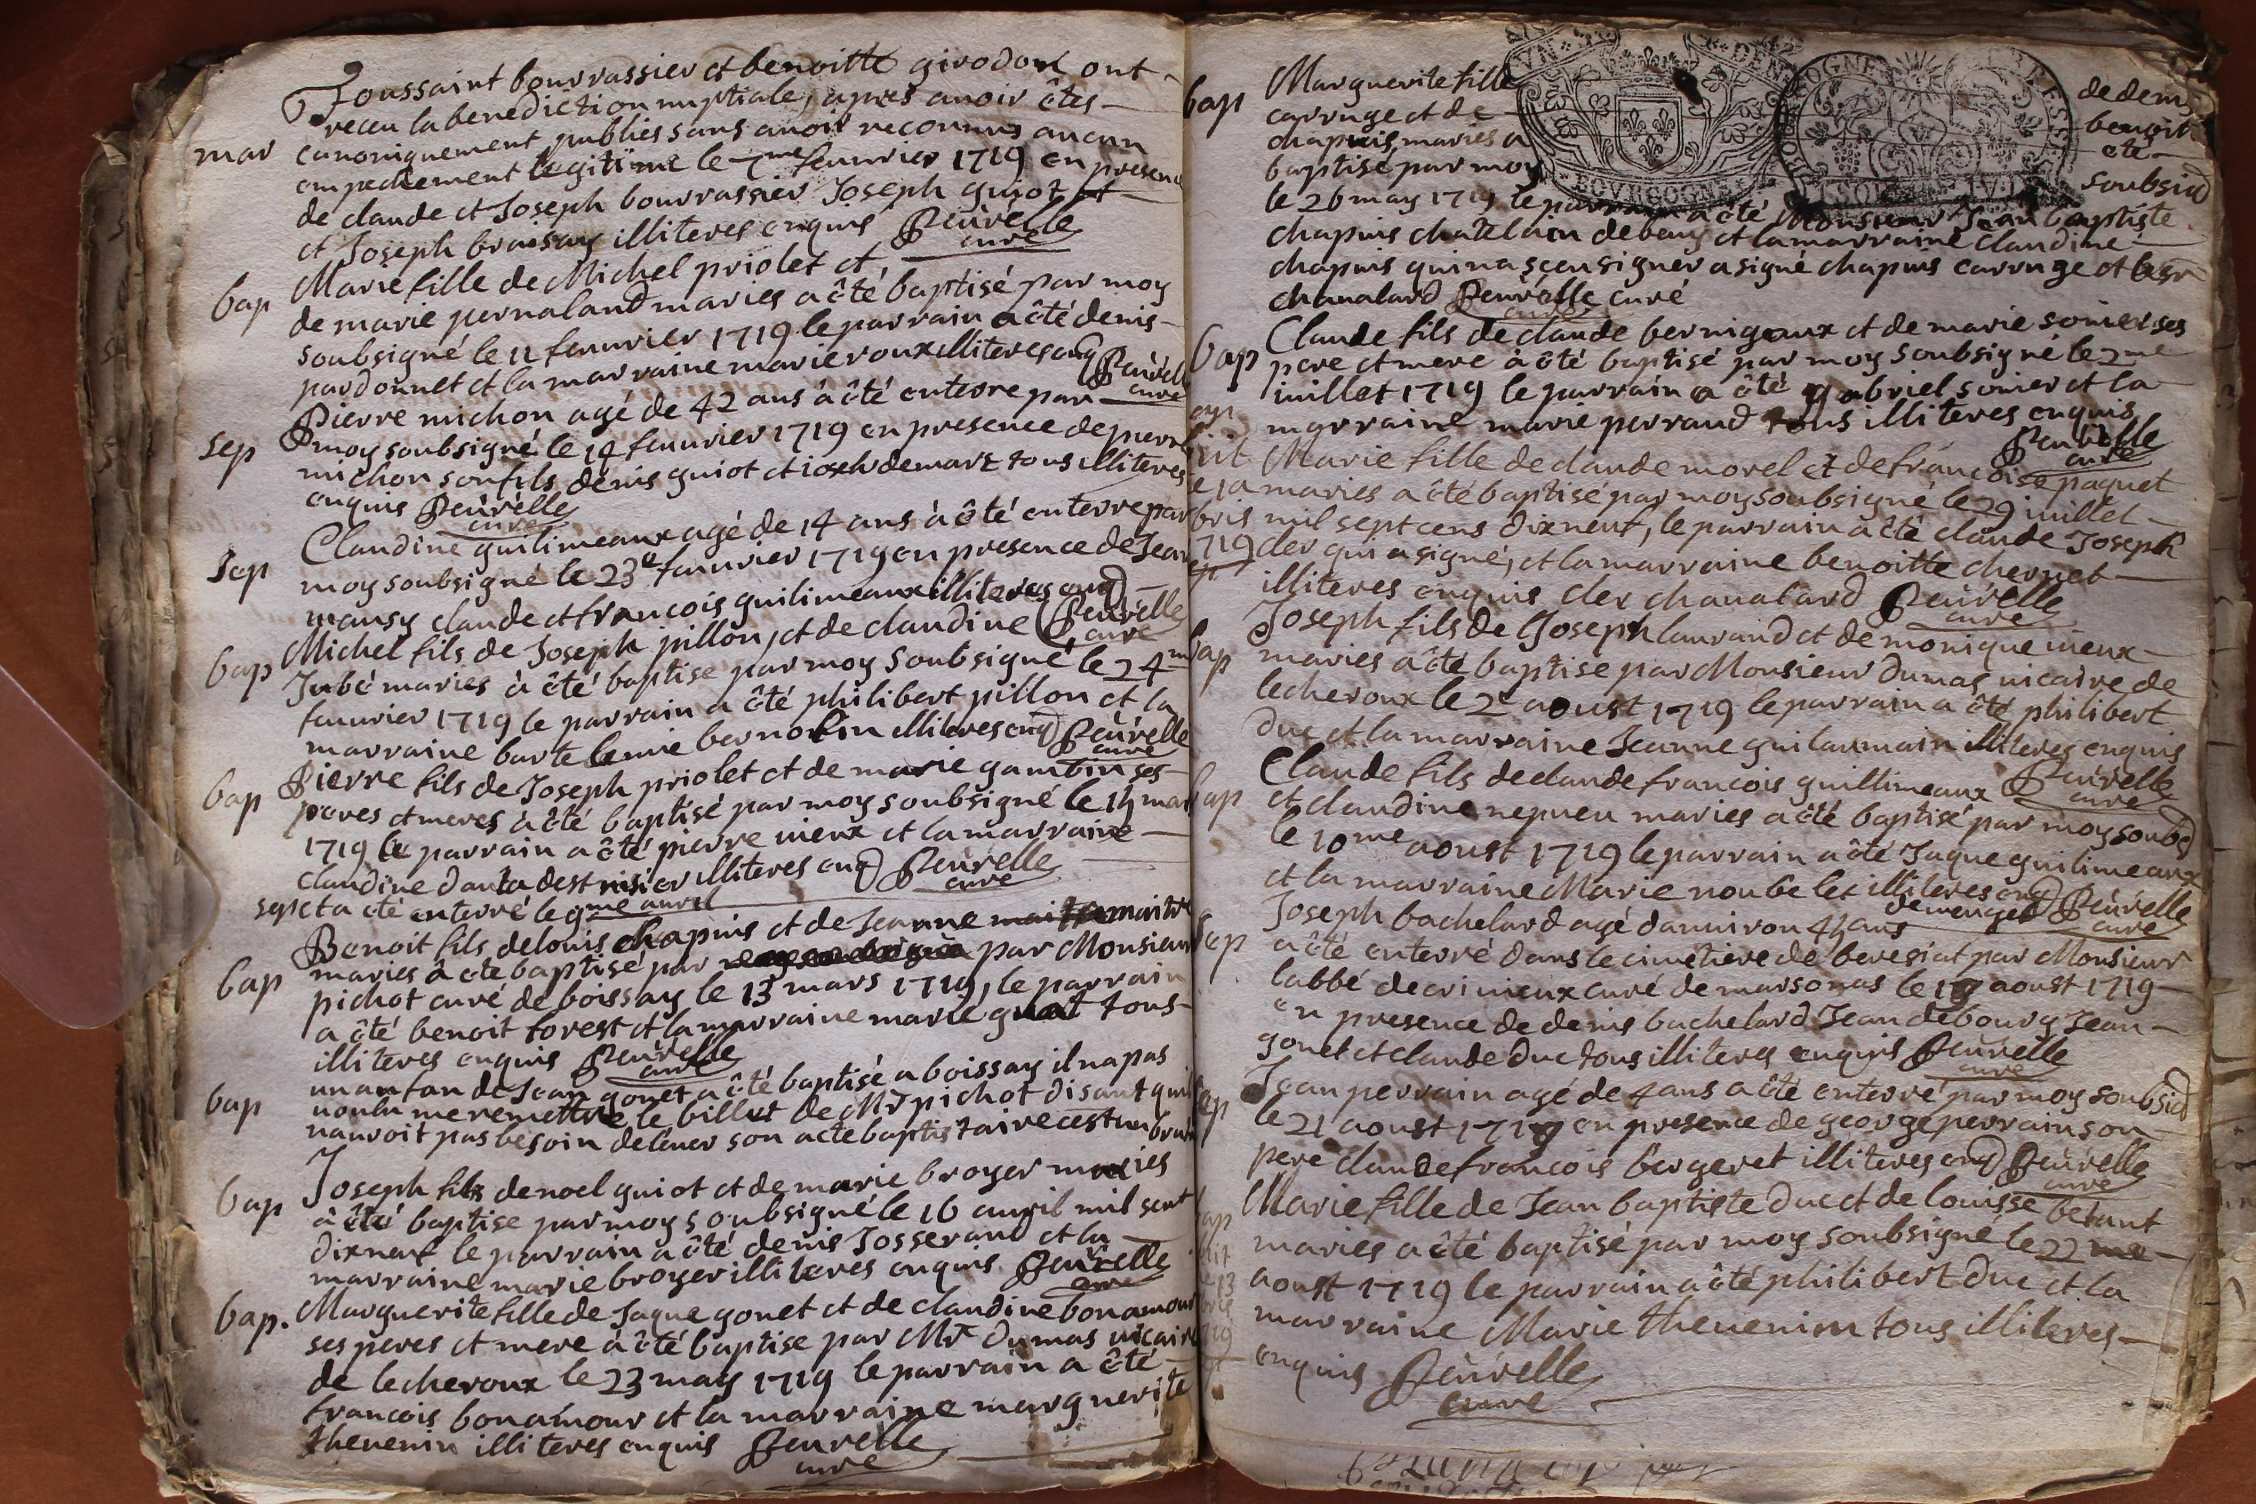 Toussaint bourrassier et benoitte girodon ont
receu la benediction nuptiale, apres avoir êtes
mar canoniquement publies sans avoir reconnus aucun
empechement legitime le 7me feuurier 1719 en presence
de claude et Joseph bourrassier Joseph guiot et
et Joseph braissay illiteres enquis Peuvrelle
curé
Marie fille de Michel priolet et
bap de marie pernaland maries a êté baptisé par moy
soubsigné le 11 feuurier 1719 le parrain a êté denis
pardonnet et la marraine marie roux illiteres enq Peuvrelle
curé
Pierre michon agé de 42 ans à êté enterre par
sep moy soubsigné le 14 feuurier 1719 en presence de pierre
michon son fils denis guiot et ioseh demare tous illiteres
enquis Peuvrelle
curé
Claudine guilimeaux agé de 14 ans à êté enterre par
sep moy soubsigné le 23e feuurier 1719 en presence de Jean
mansy claude et francois guilimeaux illiteres enq
Michel fils de Joseph pillon, et de claudine Peuvrelle
curé
bap Jubé maries à êté baptise par moy soubsigné le 24me
feuurier 1719 le parrain a êté philibert pillon et la
marraine bartelemie bernolin illiteres enq Peuvrelle
curé
Pierre fils de Joseph priolet et de marie gambin ses
bap peres et meres à êté baptisé par moy soubsigné le 14 mars
1719 le parrain a êté pierre vieux et la marraine
claudine danla destrisier illiteres enq Peuvrelle
curé
sep et a eté enterré le 9me auril
Benoit fils de louis chapuis et de Jeanne maitre
bap maries à eté baptisé par par Monsieur
pichot curé de boissay le 13 mars 1719, le parrain
a êté benoit forest et la marraine marie guat tous
illiteres enquis Peuvrelle
curé
un anfan de Jean gonet a êté baptisé a boissay il na pas
bap uoulu me remettre le billet de Mr pichot disant quil
nauroit pas besoin de leuer son acte baptistaire cest un brun
Joseph fils de noel guiot et de marie broyer maries
bap à êté baptise par moy soubsigné le 16 auril mil sept
dixneuf le parrain a êté denis Josserand et la
marraine marie broyer illiteres enquis Peuvrelle
curé
bap. Marguerite fille de Jaque gonet et de claudine bonamour
ses peres et mere à êté baptise par Mr dumas uicaire
de lecheroux le 23 may 1719 le parrain a êté
francois bonamour et la marraine marguerite
theuenin illiteres enquis Peuvrelle
curé
bap Marguerite fille de dem
carruge et de benoite
chapuis, maries a eté
baptisé par moy soubsig
le 26 may 1719 le parrain a êté Monsieur Jean baptiste
chapuis chatelain de beny et la marraine claudine
chapuis qui na sceu signer a signé chapuis carruge et
chaualard Peuvrelle curé
curé
Claude fils de claude bernigaux et de marie sonier ses
bap pere et mere à êté baptisé par moy soubsigné le 2me
iuillet 1719 le parrain a êté gabriel sonier et la
marraine marie perraud tous illiteres enquis
Peuvrelle
curé
Marie fille de claude morel et de francoise paquet
maries a êté baptisé par moy soubsigné le 29 iuillet
mil sept cens dixneuf, le parrain a êté claude Joseph
cler qui a signé, et la marraine benoitte chernet
illiteres enquis cler chaualard Peuvrelle
curé
Joseph fils de Joseph lauraind et de monique uieux
bap maries à êté baptise par Monsieur dumas uicaire de
lecheroux le 2e aoust 1719 le parrain a êté philibert
duc et la marraine Jeanne guilarmain illiteres enquis
Peuvrelle
curé
Claude fils de claude francois guillimeaux
bap et claudine nepueu maries a êté baptisé par moy soubs
le 10me aoust 1719 le parrain a êté Jaque guilimeaux
et la marraine Marie noubelet illiteres enq Peuvrelle
curé
Joseph bachelard agé danuiron 44 ans
sep a êté enterré dans le cimetiere de beresiat par Monsieur
labbé de crimieux curé de marsonas le 19 aoust 1719
en presence de denis bachelard Jean debourg Jean
gonet et claude duc tous illiteres enquis Peuvrelle
curé
Jean perrain agé de 4 ans a êté enterré par moy soubsig
sep le 21 aoust 1719 en presence de george perrain son
pere claude francois bergeret illiteres enq Peuvrelle
curé
Marie fille de Jean baptiste duc et de louisse betant
bap maries a êté baptisé par moy soubsigné le 22 me
aoust 1719 le parrain a êté philibert duc et la
marraine Marie theuenin tous illiteres
enquis Peuvrelle
curé